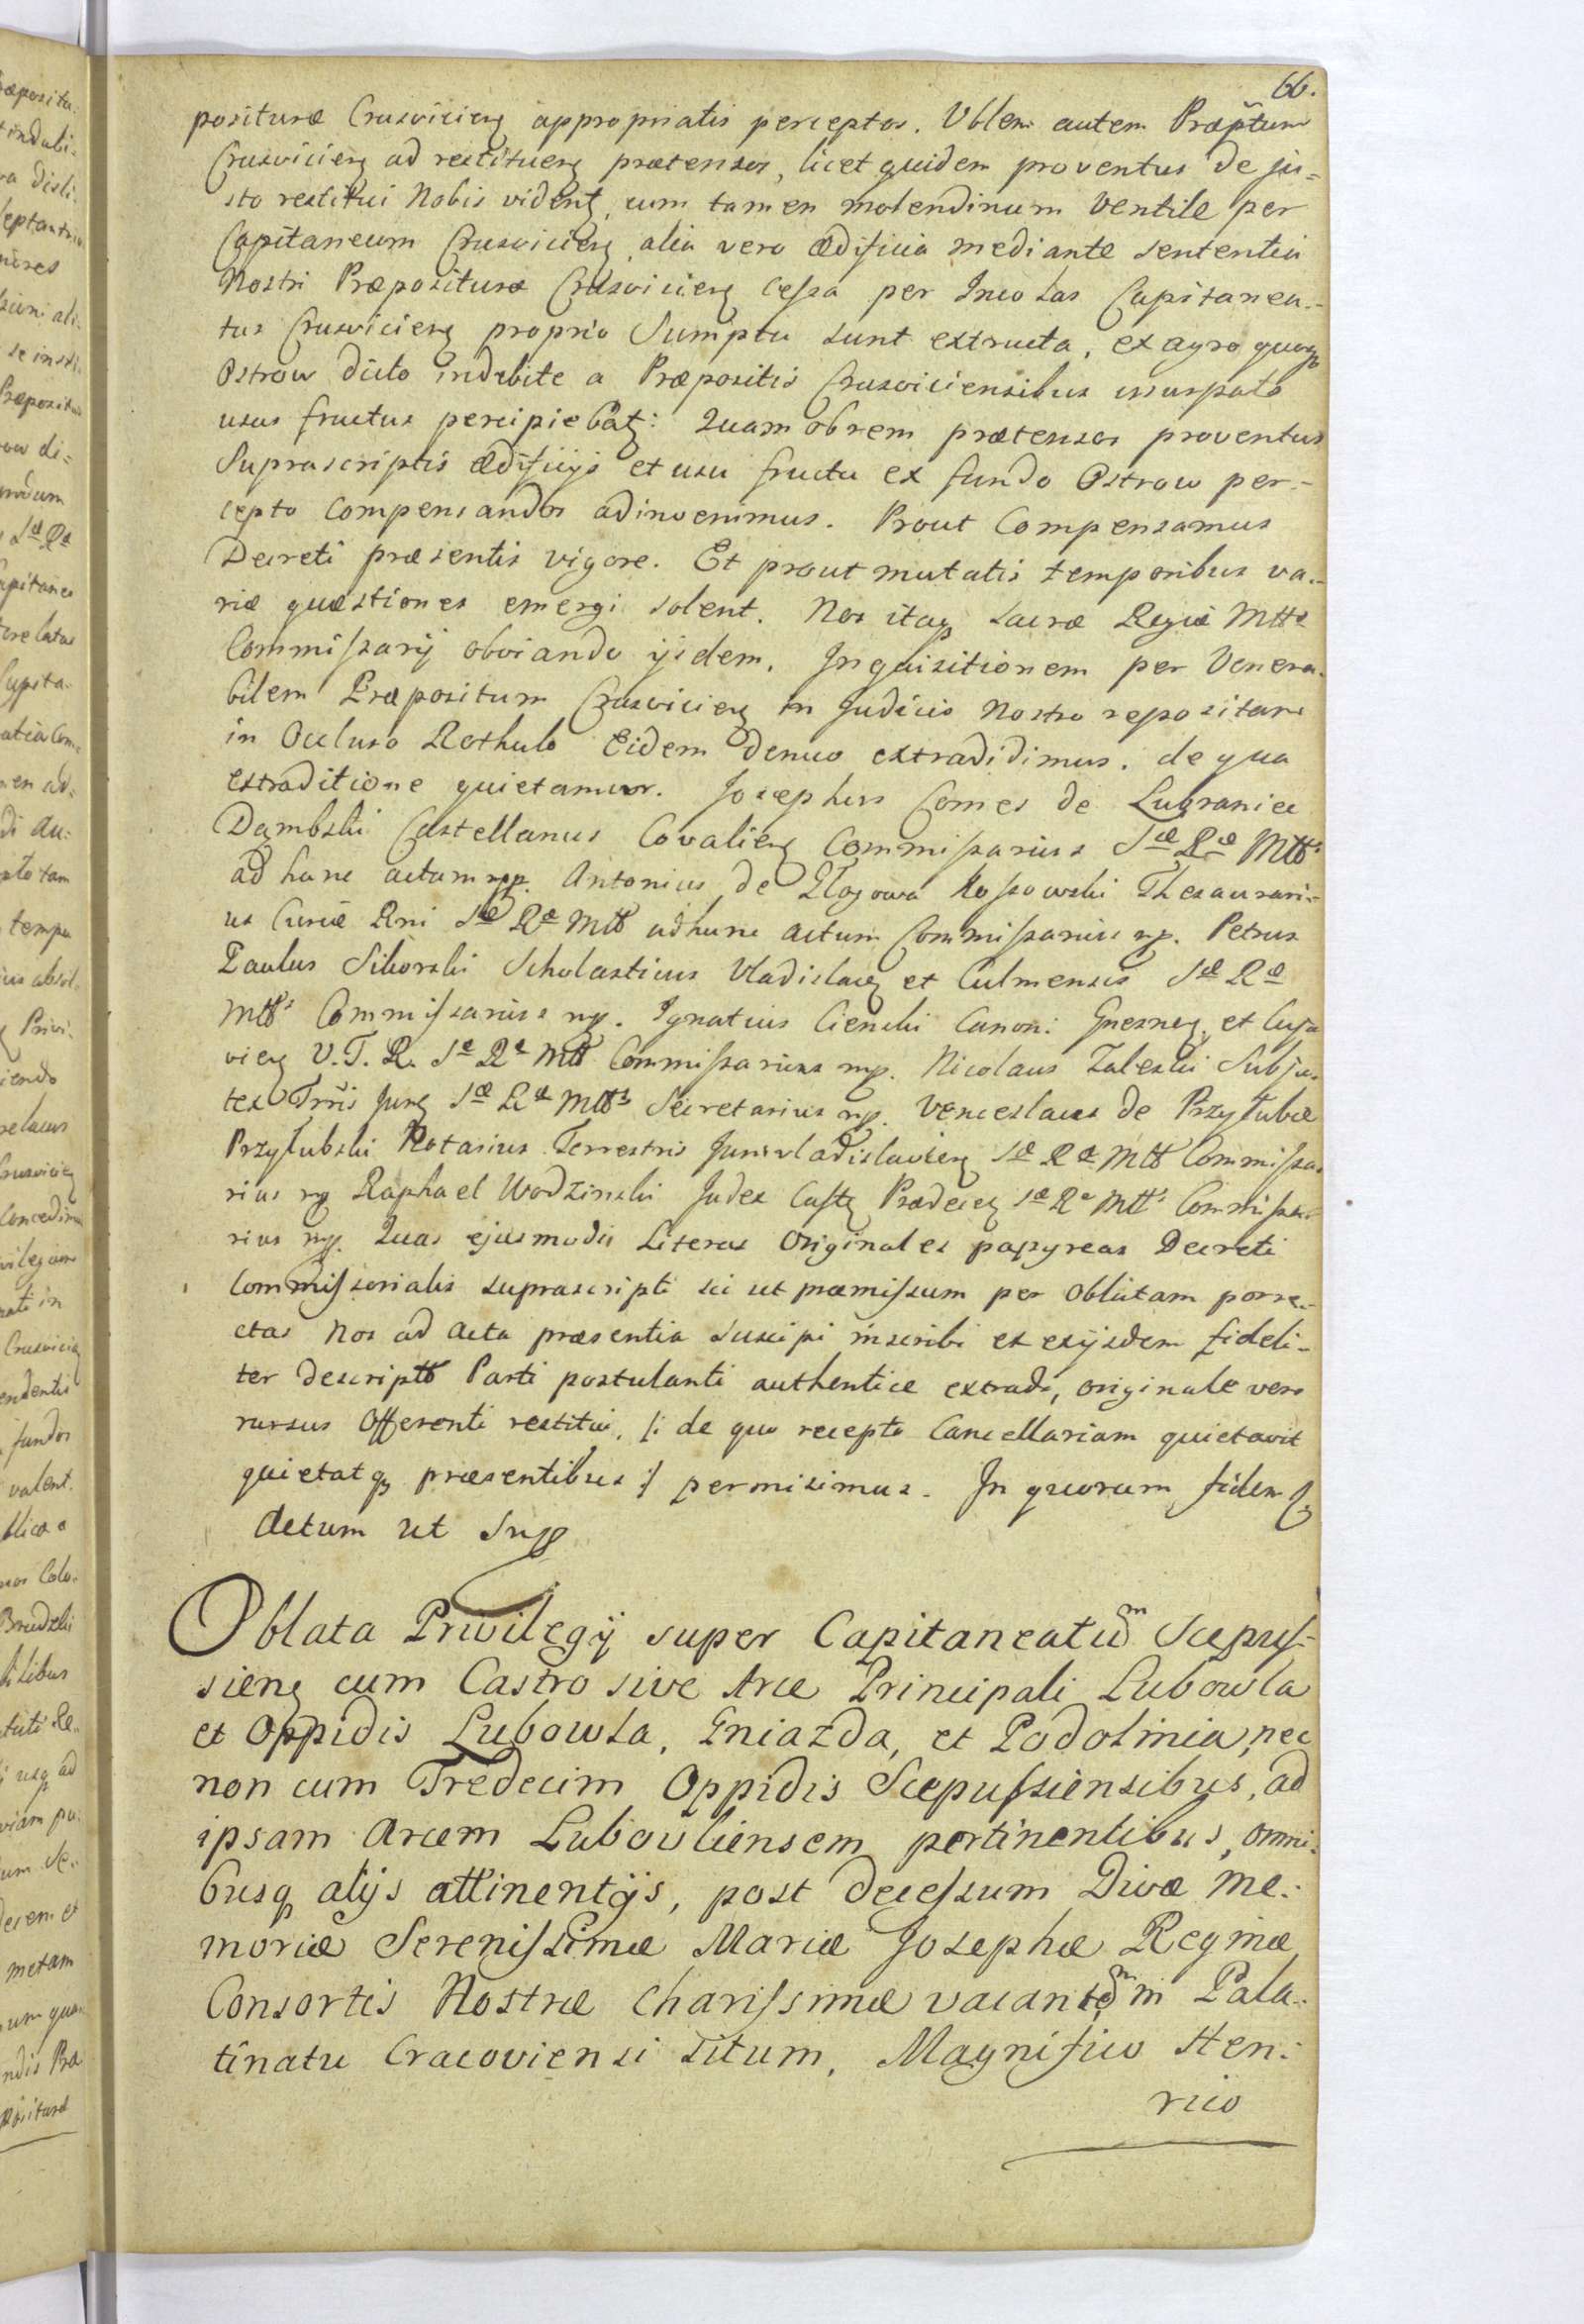 66.
posituræ Crusvicieñ appropriatis perceptos. Vblem autem Præptum
Crusvicieñ ad restitueñ prætensos, licet quidem proventus de ju=
sto restitui Nobis videntꝫ, cum tamen molendinum Ventile per
Capitaneum Crusvicieñ, alia vero ædificia mediante sententia
Nostri Præposituræ Crusvicieñ cessa per Incolas Capitanea-
tus Crusvicieñ proprio Sumptu sunt extructa, ex agro quoqꝫ
Ostrow dicto indebite a Præpositis Crusviciensibus usurpato
usus fructus percipiebatꝫ: Quam obrem prætensos proventus
Suprascriptis ædificijs et usu fructu ex fundo Ostrow per-
cepto Compensandos adinvenimus. Prout Compensamus
Decreti præsentis vigore. Et prout mutatis temporibus va-
riæ quæstiones emergi solent. Nos itaqꝫ Sacræ Regiæ Mttis
Commissarij obviando ijsdem, Inquisitionem per Venera-
bilem Præpositum Crusvicieñ in Judicio Nostro repositam
in Occluso Rothulo Eidem denuo extradidimus, de qua
extraditione quietamur. Josephus Comes de Lubraniec
Dąmbski Castellanus Covalieñ Commissarius Sæ Ræ Mttis
ad hunc actum mp. Antonius de Głogowa Kossowski Thesaurari-
us Curiæ Rni Sæ Ræ Mtt ad hunc actum Commissarius mp. Petrus
Paulus Sikorski Scholasticus Vladislavieñ et Culmensis Sæ Ræ
Mtts Commissarius mp. Ignatius Cienski Canon: Gnesneñ et Cuja
vieñ V. J. R. Sæ Ræ Mtt Commissarius mp. Nicolaus Zaleski Subju-
dex Trris Juneñ Sæ Ræ Mtts Secretarius mp. Venceslaus de Przyłubie
Przyłubski Notarius Terrestris Junivladislavieñ Sæ Ræ Mtt Commissa-
rius mp Raphael Wodzinski Judex Castꝫ Prædeceñ Sæ Ræ Mtts Commissa-
rius mp. Quas ejusmodi Literas Originales papyreas Decreti
Commissorialis suprascripti sic ut præmissum per Oblatam porre-
ctas Nos ad Acta præsentia Suscipi inscribi et ex ijsdem fideli-
ter descriptt Parti postulanti authentice extradi, originale vero
rursus Offerenti restitui, /: de quo recepto Cancellariam quietavit
quietatqꝫ præsentibus :/ permisimus. In quorum fidem ꝫ
Actum ut Supp
Oblata Privilegij super Capitaneatum Scepus-
sieñ cum Castro sive Arce Principali Lubowla
et Oppidis Lubowla, Gniazda, et Podolinia, nec
non cum Tredecim Oppidis Scepussiensibus, ad
ipsam Arcem Lubowliensem pertinentibus, omni-
busqꝫ alijs attinentijs, post decessum Divæ Me-
moriæ Serenissimæ Mariæ Josephæ Reginæ
Consortis Nostræ Charissimæ vacantem in Pala-
tinatu Cracoviensi situm, Magnifico Hen-
rico